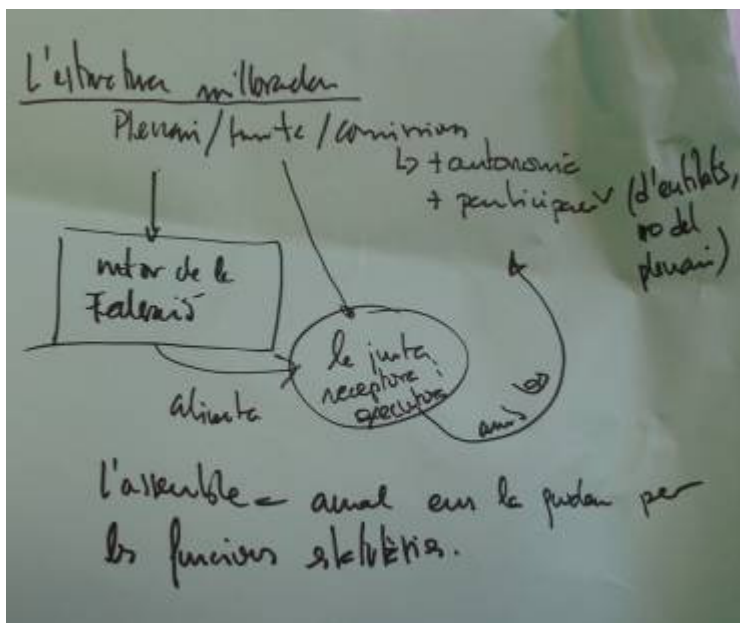 L'estructura millorada
Plenari/junta/comissions
↳ + autonomia
+ participació (d'entitats,
no del
plenari)
motor de la
Federació
alimenta
la junta,
receptora i
executora
amb
L'assemblea anual ens la guarden per
les funcions estatutàries.